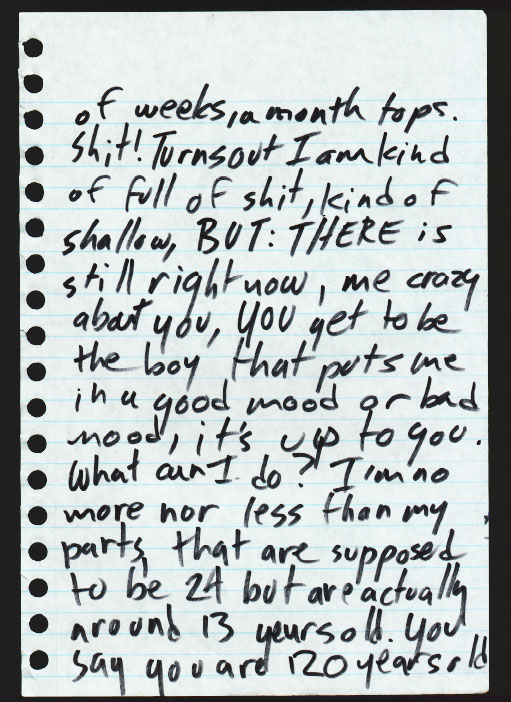 of weeks, a month tops.
Shit! Turns out I am kind
of full of shit, kind of
shallow, BUT: THERE is
still right now, me crazy
about you, YOU get to be
the boy that puts me
in a good mood or bad
mood, it's up to you.
What can I do? I'm no
more nor less than my
parts, that are supposed
to be 24 but are actually
around 13 years old. You
say you are 120 years old